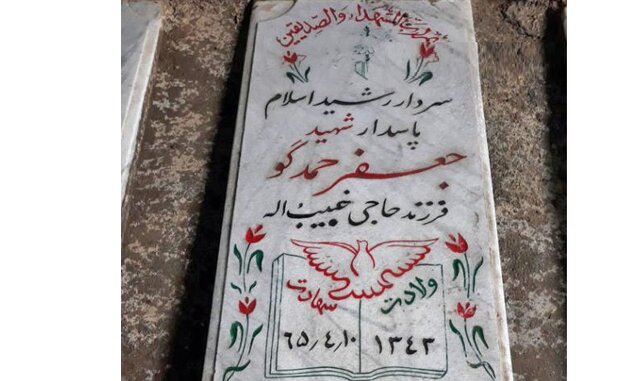 بسم رب الشهداء والصدیقین
سردار رشید اسلام
پاسدار شهید
جعفر حمدگو
فرزند حاجی حبیب اله
ولادت شهادت
۱۳۴۳ ۶۵/۴/۱۰